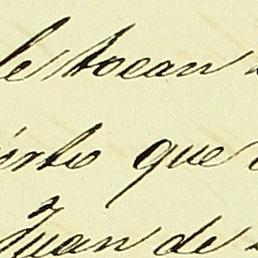 le tocan
que
Juan de